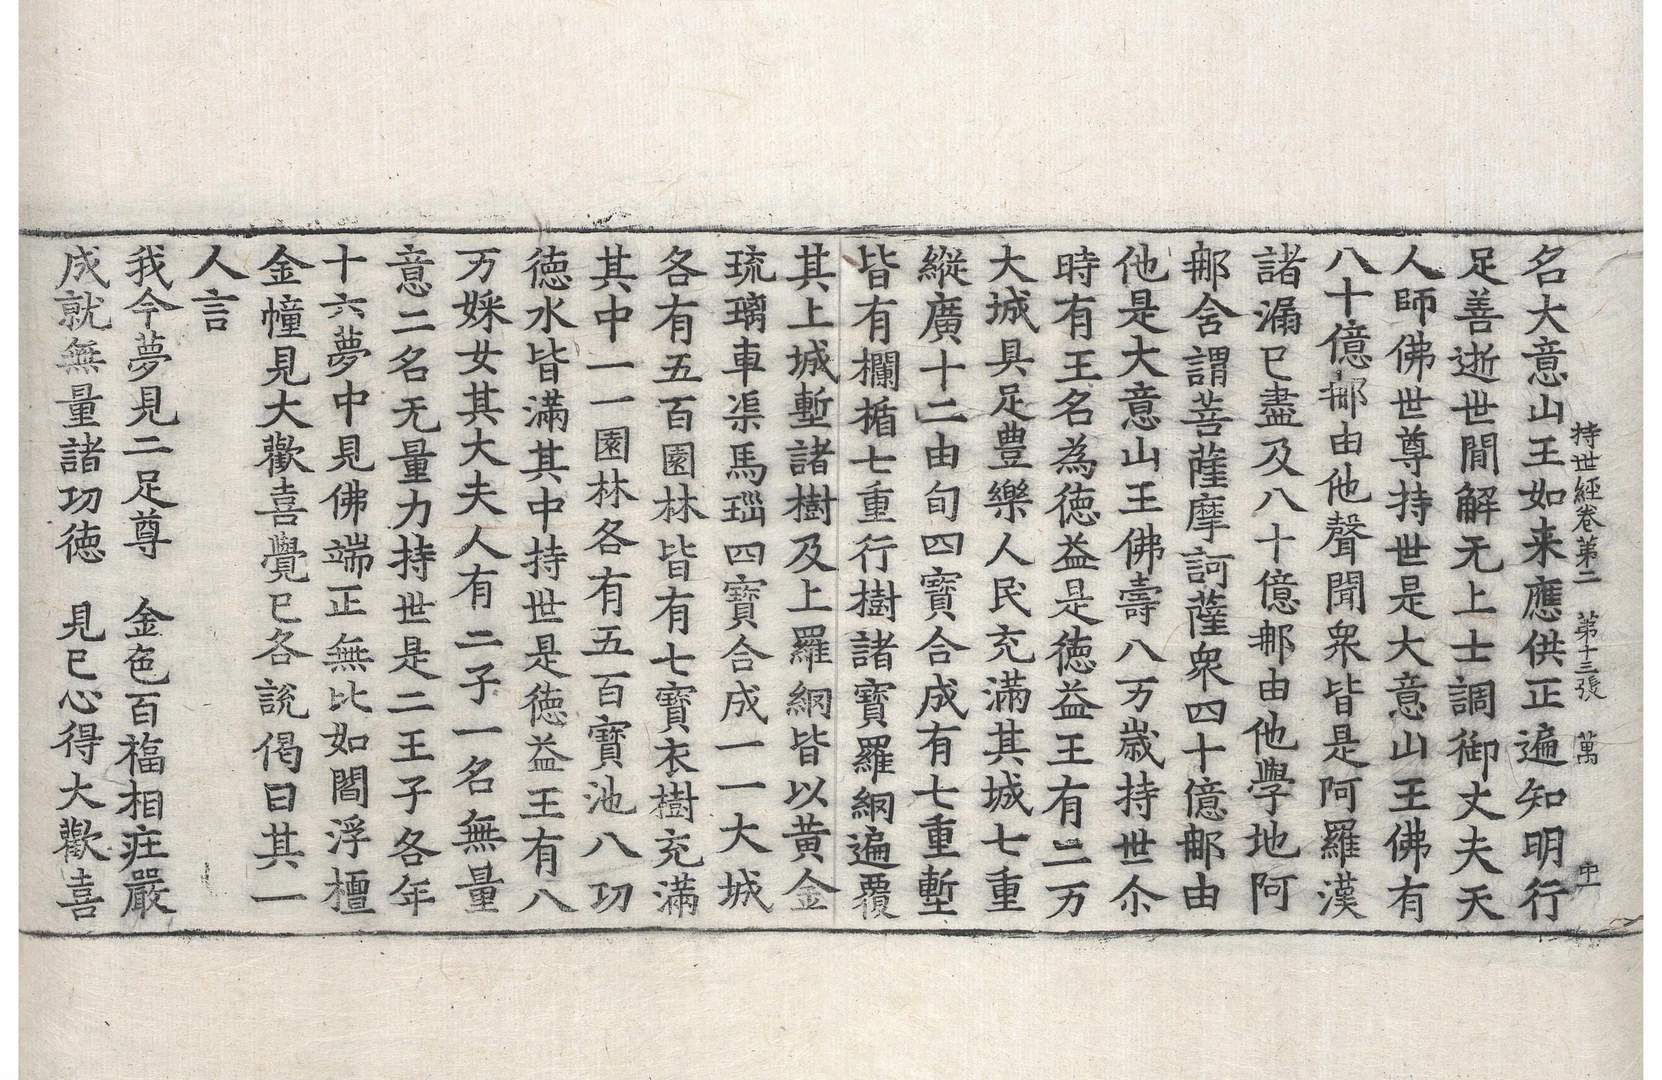 持世經卷第二 第十三張 萬
名大意山王如来應供正遍知明行
足善逝世閒解无上士調御丈夫天
人師佛世尊持世是大意山王佛有
八十億郍由他聲聞衆皆是阿羅漢
諸漏已盡及八十億郍由他學地阿
郍含謂菩薩摩訶薩衆四十億郍由
他是大意山王佛壽八万歲持世尒
時有王名為徳益是徳益王有二万
大城具足豊樂人民充滿其城七重
縱廣十二由旬四寳合成有七重塹
皆有欄楯七重行樹諸寳羅網遍覆
其上城塹諸樹及上羅網皆以黃金
琉璃車渠馬瑙四寳合成一一大城
各有五百園林皆有七寳衣樹充滿
其中一一園林各有五百寳池八功
徳水皆滿其中持世是徳益王有八
万婇女其大夫人有二子一名無量
意二名无量力持世是二王子各年
十六夢中見佛端正無比如閻浮檀
金幢見大歡喜覺已各說偈曰其一
人言
我今夢見二足尊 金色百福相庄嚴
成就無量諸功徳 見已心得大歡喜